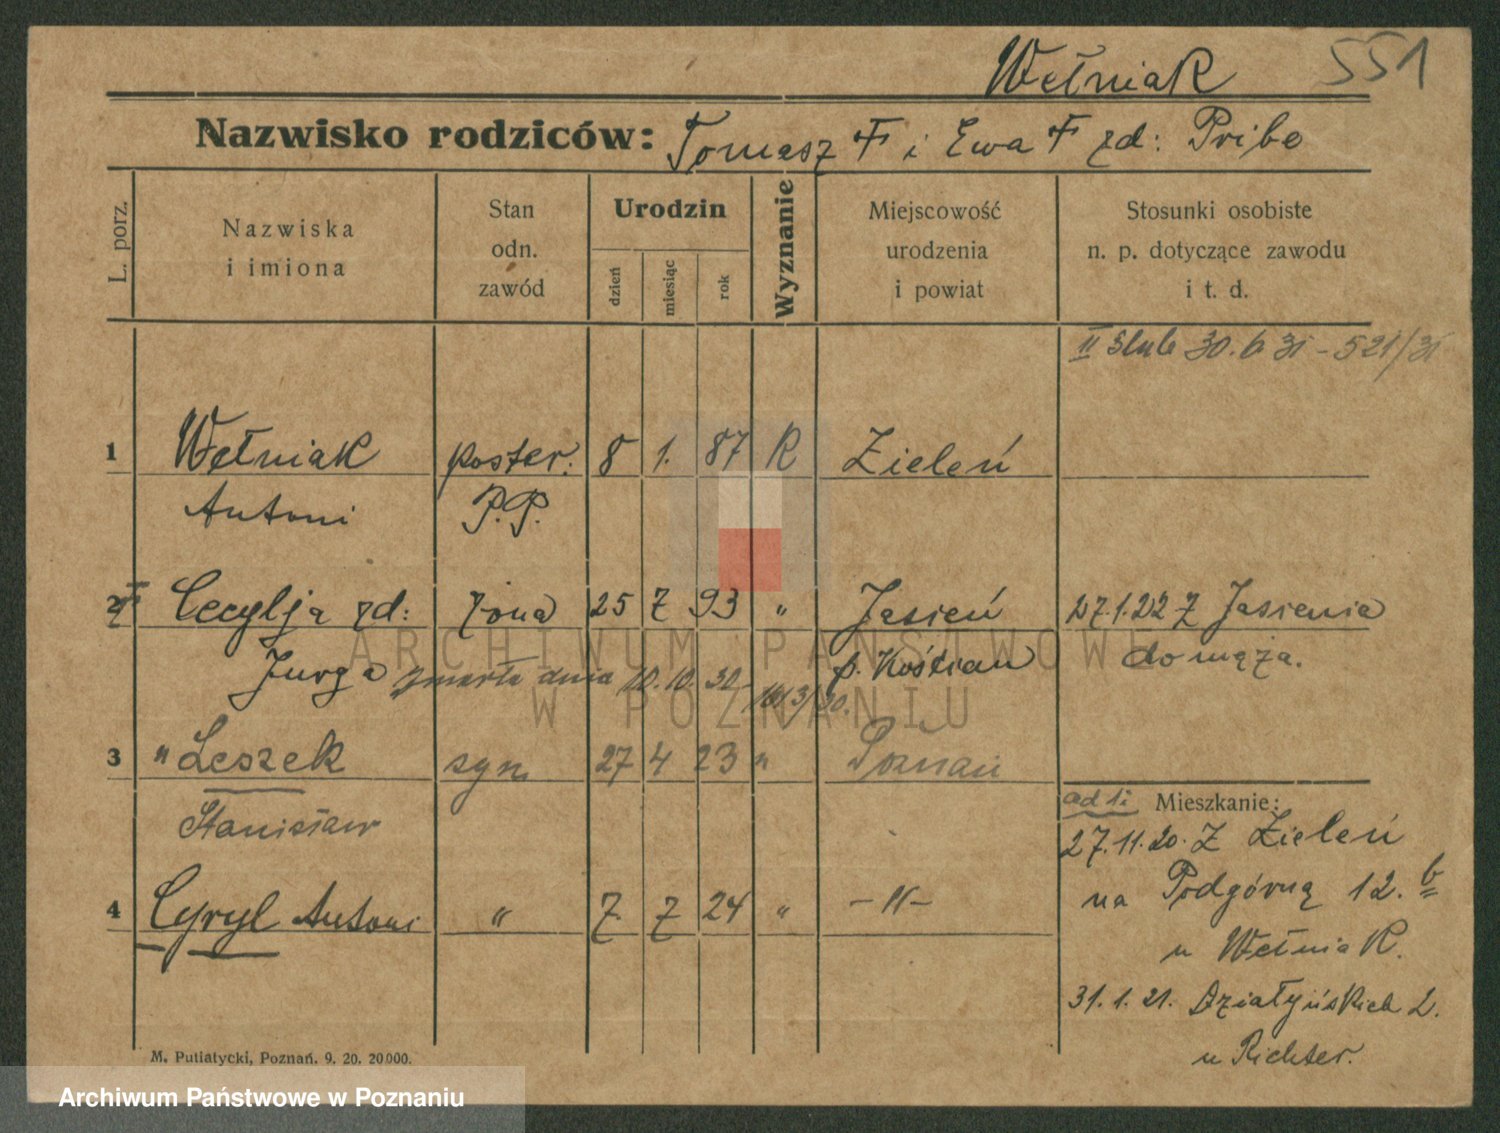 Wełniak 551
Nazwisko rodziców: Tomasz i Ewa zd: Pribe
L. porz.
Nazwiska
i imiona
Stan
odn.
zawód
Urodzin
dzień
miesiąc
rok
Wyznanie
Miejscowość
urodzenia
i powiat
Stosunki osobiste
n. p. dotyczące zawodu
i t. d.
II Slub 30. 6 31 - 521/31
1 Wełniak poster: 8 1. 87 R Zieleń
Antoni P.P.
2 Cecylja zd: żona 25 7 93 " Jasień 27.1.22 z Jasienia
Jurga zmarła dnia 10. 10. 30 p. Kościan do męża.
3 " Leszek syn 27 4 23 " Poznań
Stanisław
ad 1i Mieszkanie:
27.11.20. z Zieleń
4 Cyryl Antoni " 7. 7 24 " -"-
na Podgórną 12. b
u Wełniak.
31. 1. 21. Działyńskich 2.
u Richter.
M. Putiatycki, Poznań. 9. 20. 20000.
ARCHIWUM PAŃSTWOWE
W POZNANIU
Archiwum Państwowe w Poznaniu